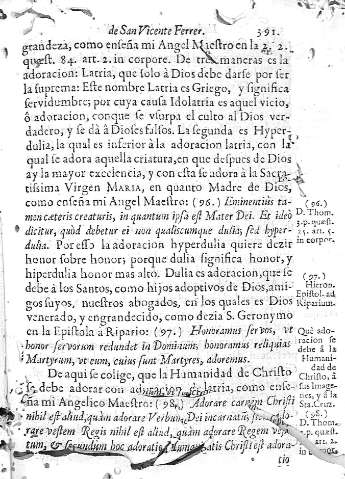 de San Vicente Ferrer. 391.
grandeza, como enseña mi Angel Maestro en la 2. 2.
quæst. 84. art. 2. in corpore. De tres maneras es la
adoracion: Latria, que solo à Dios debe darse por ser
la suprema: Este nombre Latria es Griego, y significa
servidumbre; por cuya causa Idolatria es aquel vicio,
ò adoracion, conque se vsurpa el culto al Dios ver-
dadero, y se dà à Dioses falsos. La segunda es Hyper-
dulia, la qual es inferior à la adoracion latria, con la
qual se adora aquella criatura, en que despues de Dios
ay la mayor excelencia, y con esta se adora à la Sacra-
tissima Virgen MARIA, en quanto Madre de Dios,
como enseña mi Angel Maestro: (96.) Eminentius ta-
men cæteris creaturis, in quantum ipsa est Mater Dei. Et ideò
dicitur, quòd debetur ei non qualiscumque dulia, sed hyper-
dulia. Por esso la adoracion hyperdulia quiere dezir
honor sobre honor; porque dulia significa honor, y
hiperdulia honor mas alto. Dulia es adoracion, que se
debe à los Santos, como hijos adoptivos de Dios, ami-
gos suyos, nuestros abogados, en los quales es Dios
venerado, y engrandecido, como dezia S. Geronymo
en la Epistola à Ripario: (97.) Honoramus servos, vt
honor servorum redundet in Dominum, honoramus reliquias
Martyrum, vt eum, cuius sunt Martyres, adoremus.
De aqui se colige, que la Humanidad de Christo
se debe adorar con adoracion de latria, como ense-
ña mi Angelico Maestro: (98.) Adorare carnem Christi
nihil est aliud, quàm adorare Verbum Dei incarnatum,
rare vestem Regis nihil est aliud, quàm adorare Regem vesti-
tum, & secundum hoc adoratio humanitatis Christi est adora-
tio
(96.)
D. Thom.
3. p. quæst.
25. art. 5.
in corpor.
(97.)
Hieron.
Epistol. ad
Riparium.
Què ado-
racion se
debe à la
Humani-
dad de
Christo, à
sus Image-
nes, y à la
Sta. Cruz.
(98.)
D. Thom.
3. p. quæst.
art. 2.